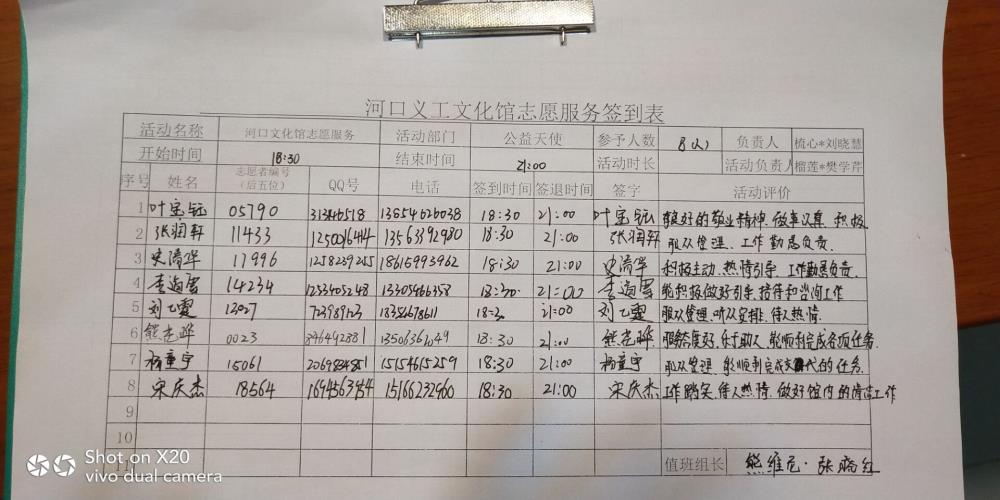 河口义工文化馆志愿服务签到表
活动名称 河口文化馆志愿服务 活动部门 公益天使 参予人数 8(人) 负责人 梳心*刘晓慧
开始时间 18:30 结束时间 21:00 活动时长 活动负责人 榴莲*樊学芹
序号 姓名 志愿者编号（后五位） QQ号 电话 签到时间 签退时间 签字 活动评价
1 叶宝钰 05790 313446518 13854626038 18:30 21:00 叶宝钰 较好的敬业精神.做事认真.积极
2 张润轩 11433 1250016414 13563392980 18:30 21:00 张润轩 服从管理、工作勤恳负责.
3 史清华 17996 1258229255 18615993962 18:30 21:00 史清华 积极主动、热情引导、工作勤恳负责.
4 14234 1253405248 13305466358 18:30 21:00 能积极做好引导.接待和咨询工作
5 13027 723989123 18354678611 18:30 21:00 服从管理.听从安排.待人热情.
6 0023 18:30 21:00 服务态度好,乐于助人,能顺利完成各项任务.
7 杨童宇 15061 2069834851 15154615259 18:30 21:00 杨童宇 服从管理 能顺利完成交代的任务.
8 宋庆杰 18564 1694563984 15166232960 18:30 21:00 宋庆杰 工作踏实.待人热情.做好馆内的清洁工作
9
10
11 值班组长 熊维尼·张晓红
Shot on X20
vivo dual camera